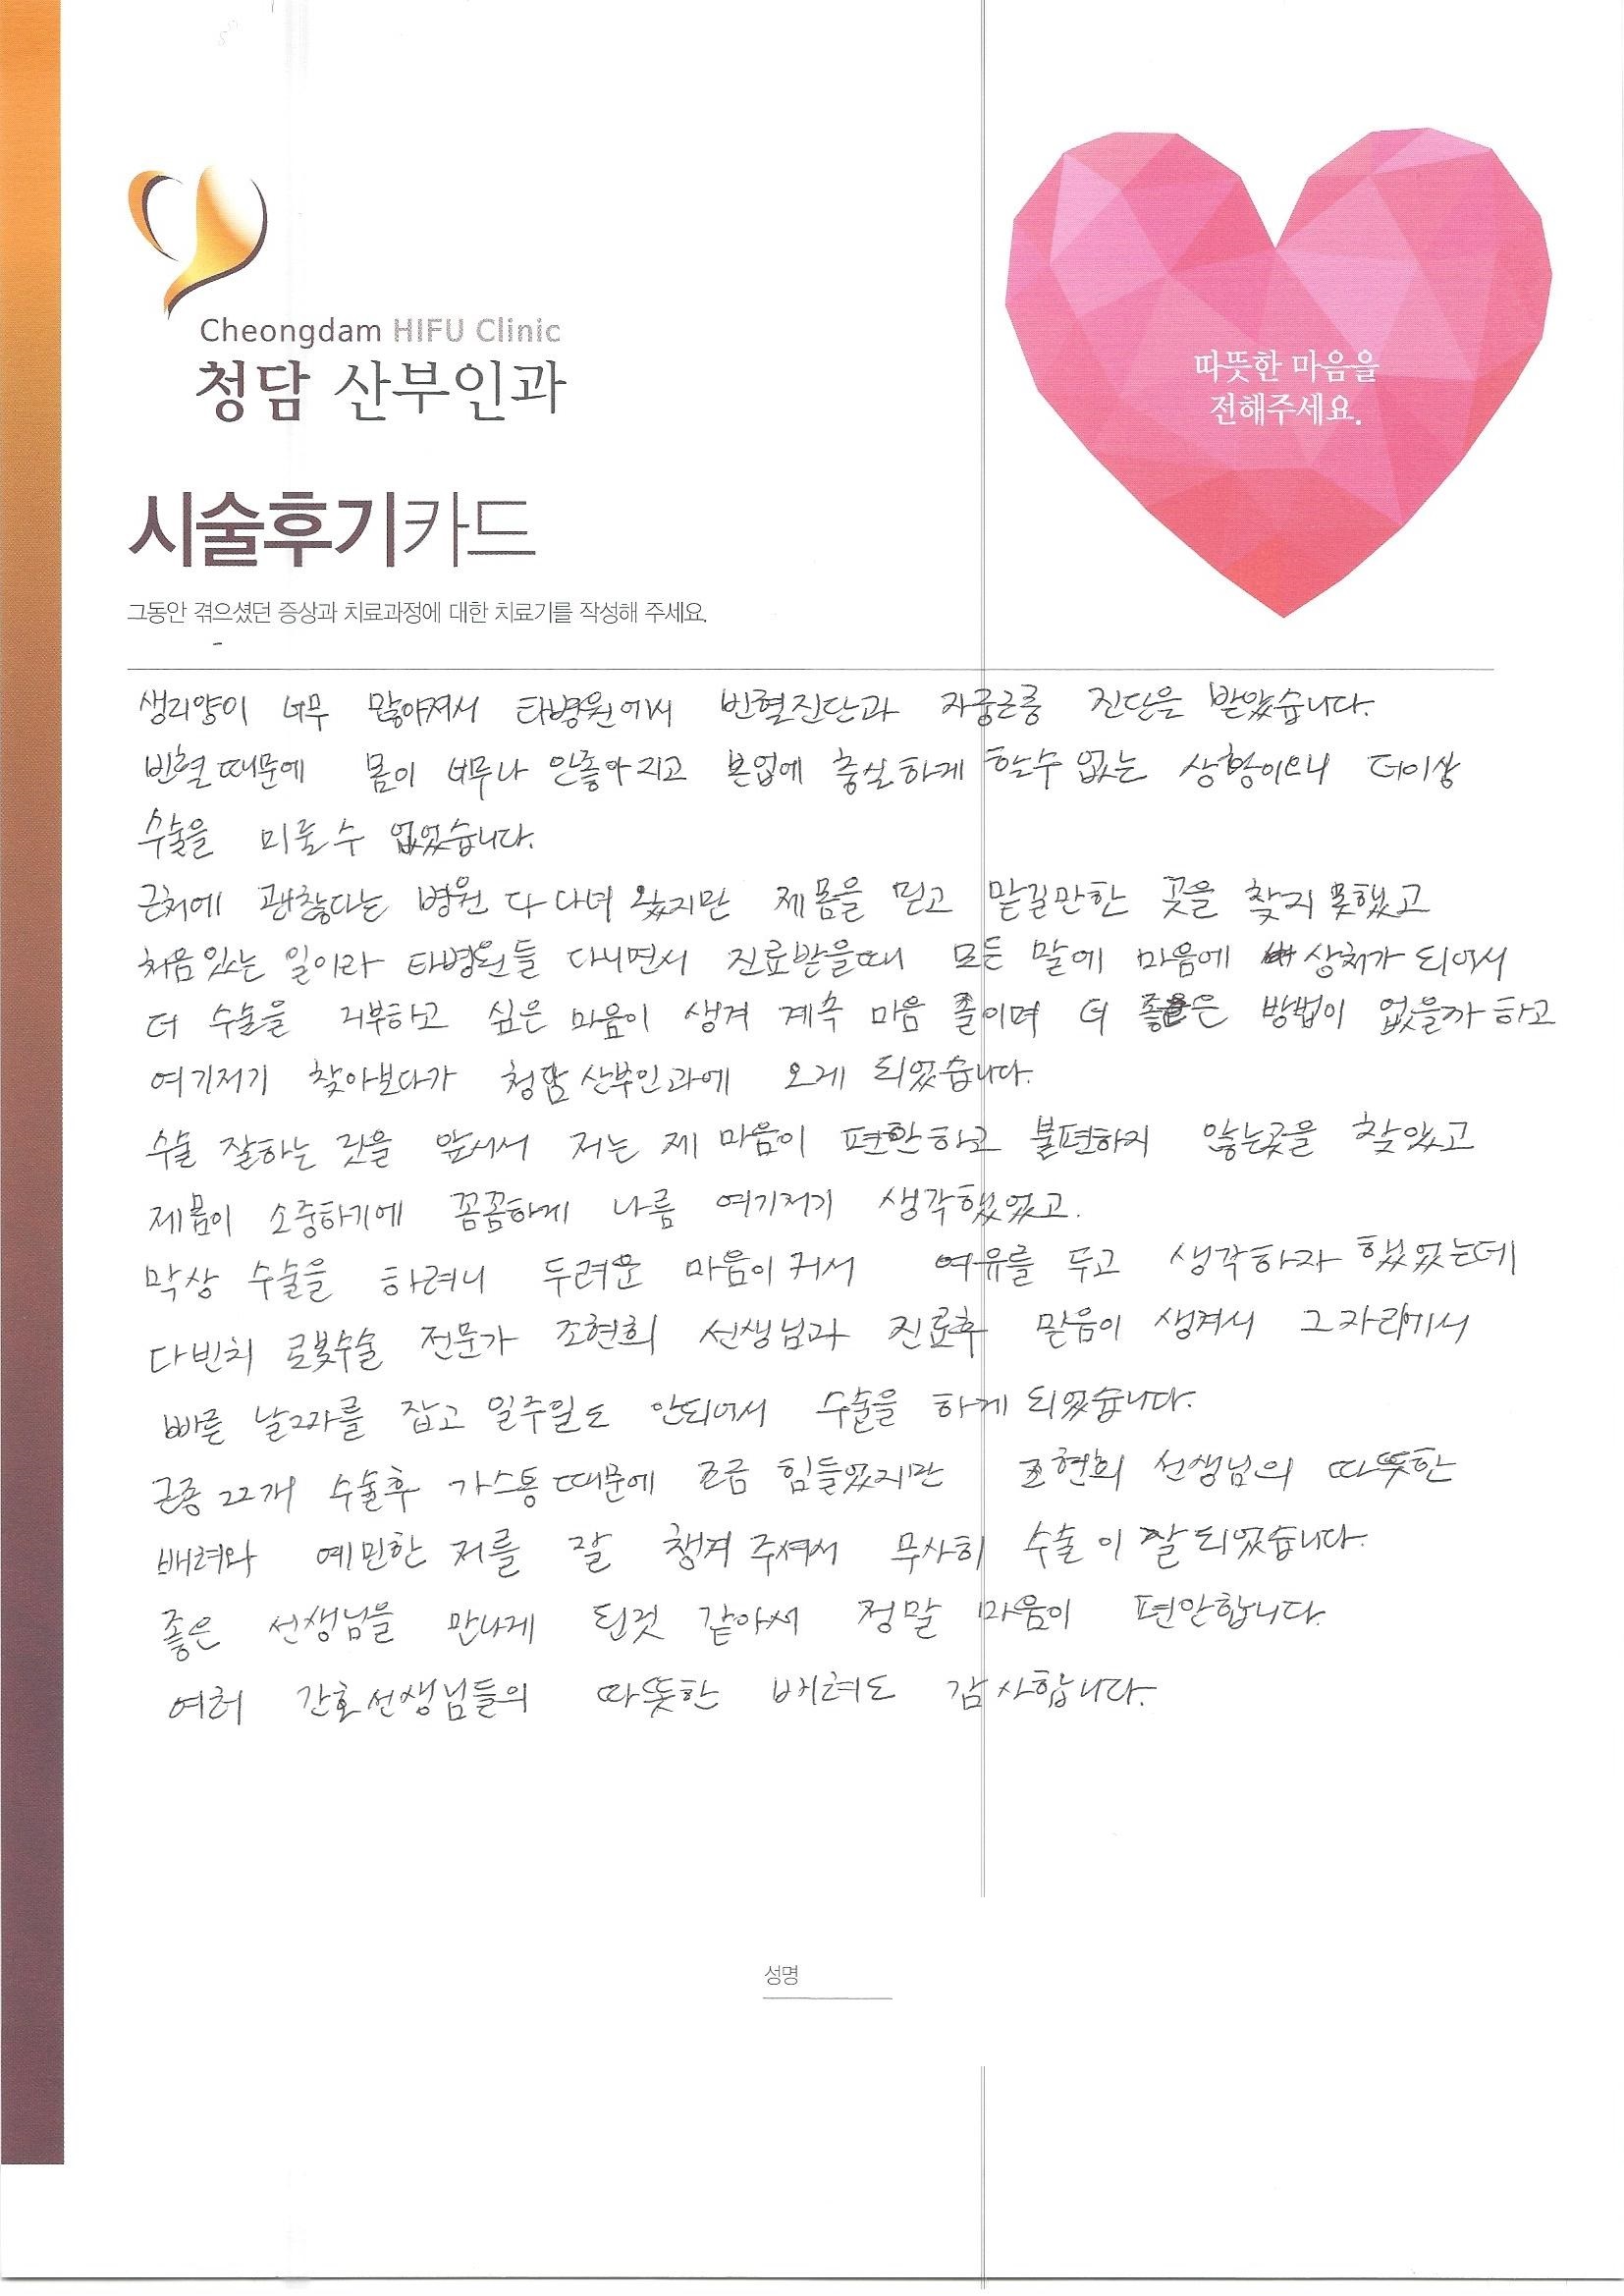 Cheongdam HIFU Clinic
청담 산부인과
따뜻한 마음을
전해주세요.
시술후기카드
그동안 겪으셨던 증상과 치료과정에 대한 치료기를 작성해 주세요.
생리양이 너무 많아져서 타병원에서 빈혈진단과 자궁근종 진단을 받았습니다.
빈혈때문에 몸이 너무나 안좋아지고 본업에 충실하게 할수 없는 상황이오니 더이상
수술을 미룰수 없었습니다.
근처에 괜찮다는 병원 다 다녀 왔지만 제몸을 믿고 맡길만한 곳을 찾지 못했고
처음있는 일이라 타병원들 다니면서 진료받을때 모든 말에 마음에 상처가 되어서
더 수술을 거부하고 싶은 마음이 생겨 계속 마음 졸이며 더 좋은 방법이 없을까 하고
여기저기 찾아보다가 청담산부인과에 오게 되었습니다.
수술 잘하는 것을 앞서서 저는 제 마음이 편한하고 불편하지 않는곳을 찾았고
제몸이 소중하기에 꼼꼼하게 나름 여기저기 생각했었고.
막상 수술을 하려니 두려운 마음이 커서 여유를 두고 생각하자 했었는데
다빈치 로봇수술 전문가 조현희 선생님과 진료후 믿음이 생겨서 그자리에서
빠른 날짜를 잡고 일주일도 안되어서 수술을 하게 되었습니다.
근종 22개 수술후 가스통때문에 조금 힘들었지만 조현희 선생님의 따뜻한
배려와 예민한 저를 잘 챙겨 주셔서 무사히 수술이 잘되었습니다.
좋은 선생님을 만나게 된것 같아서 정말 마음이 편안합니다.
여러 간호선생님들의 따뜻한 배려도 감사합니다.
성명